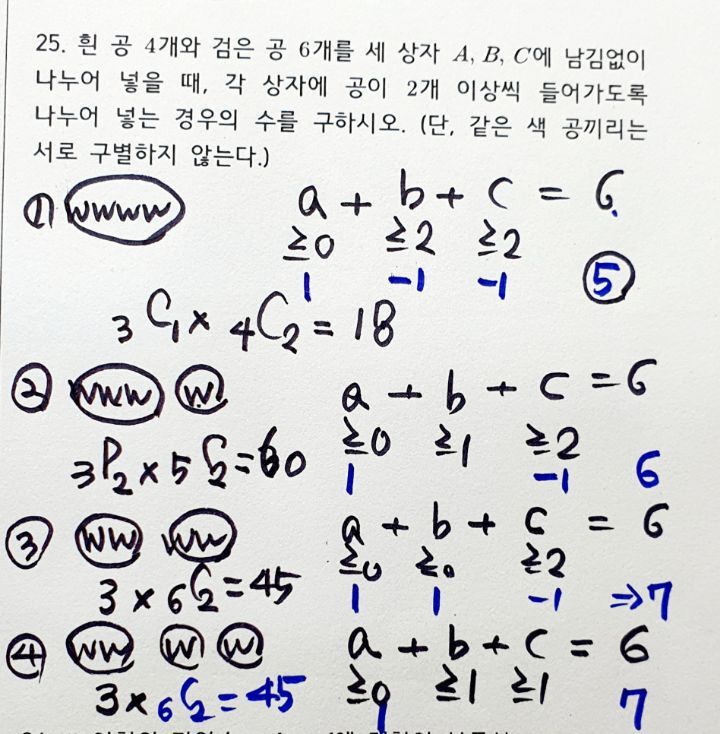 25. 흰 공 4개와 검은 공 6개를 세 상자 A, B, C에 남김없이
나누어 넣을 때, 각 상자에 공이 2개 이상씩 들어가도록
나누어 넣는 경우의 수를 구하시오. (단, 같은 색 공끼리는
서로 구별하지 않는다.)
① WWWW a + b + c = 6
≥0 ≥2 ≥2
1 -1 -1 5
₃C₁ × ₄C₂ = 18
② WWW W a + b + c = 6
₃P₂ × ₅C₂ = 60 ≥0 ≥1 ≥2
1 -1 6
③ WW WW a + b + c = 6
≥0 ≥0 ≥2
3 × ₆C₂ = 45 1 1 -1 ⇒ 7
④ WW W W a + b + c = 6
3 × ₆C₂ = 45 ≥0 ≥1 ≥1
1 7